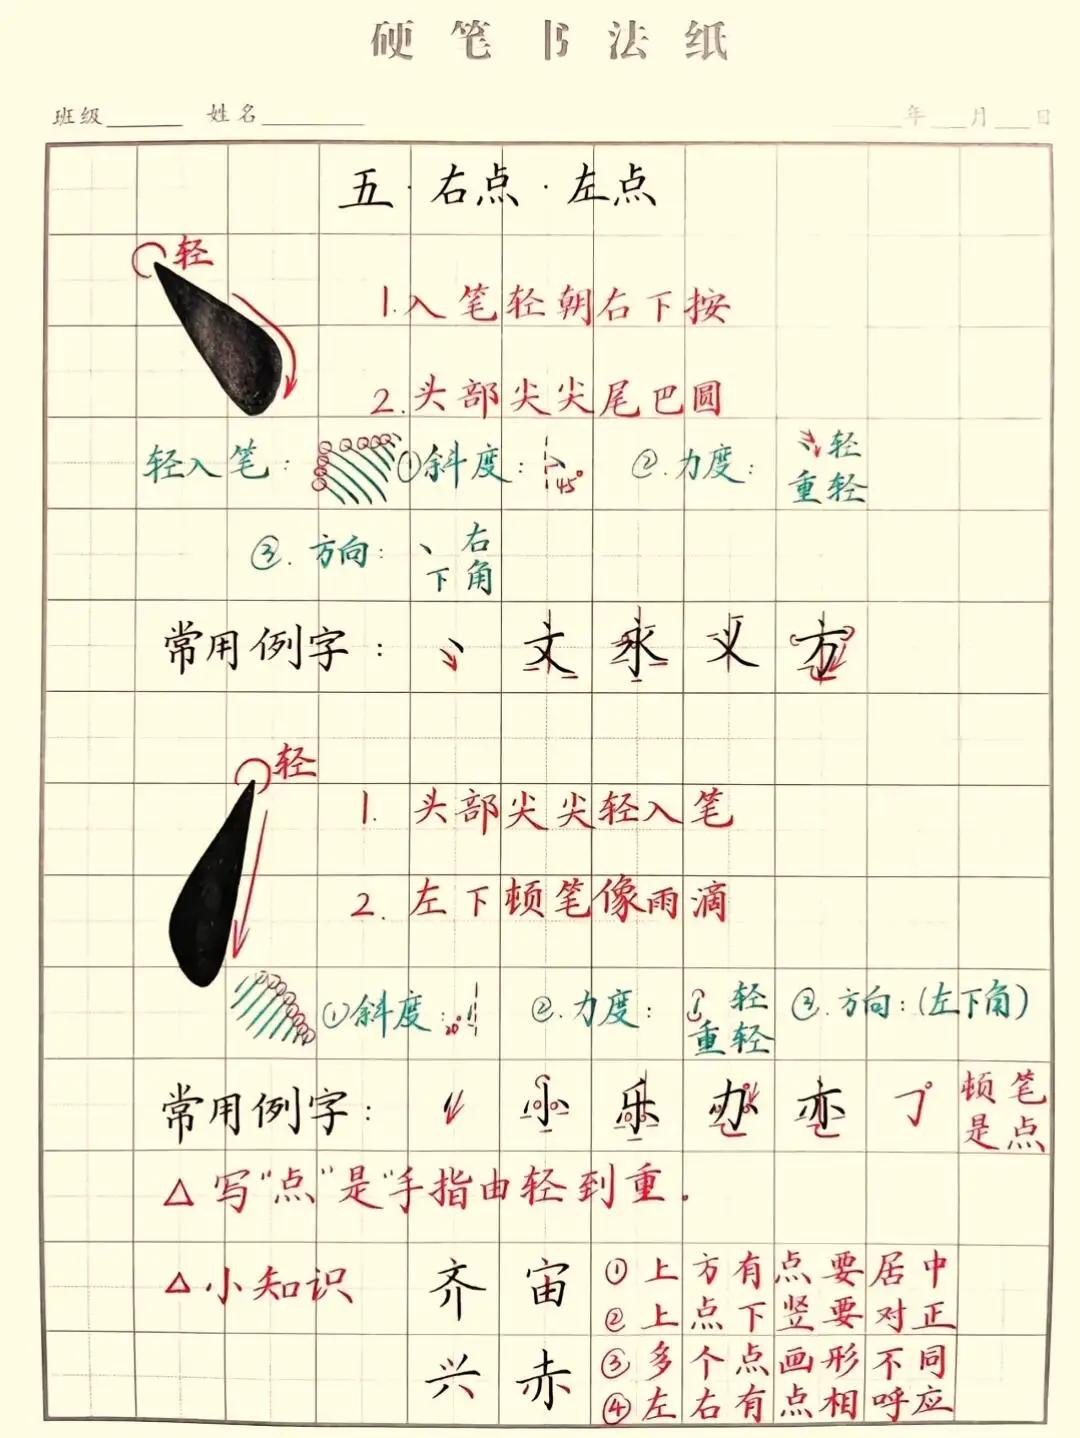 硬笔书法纸
班级 姓名 年 月 日
五·右点·左点
轻
1.入笔轻朝右下按
2.头部尖尖尾巴圆
轻入笔: ①斜度: 45° ②.力度: 轻
重轻
③.方向: 丶 右
下角
常用例字: 丶 文 永 义 方
轻
1. 头部尖尖轻入笔
2. 左下顿笔像雨滴
①斜度: 20° ②.力度: 轻 ③.方向:(左下角)
重轻
常用例字: 小 乐 办 亦 顿笔
是点
△写“点”是“手指由轻到重.
△小知识 齐 宙 ①上方有点要居中
②上点下竖要对正
兴 赤 ③多个点画形不同
④左右有点相呼应